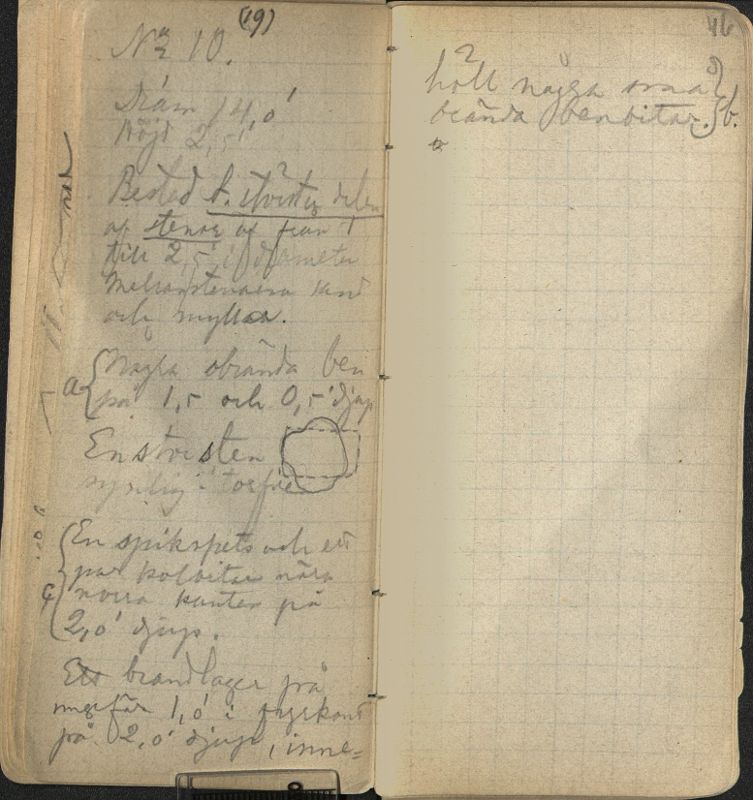 (19)
No 10.
Diam 14,0'
Höjd 2,5'
Bestod t. största delen
af stenar af från 1
till 2,5' i diameter
Mellan stenarna sand
och mylla.
a
Några obrända ben
på 1,5 och 0,5' djup
En större sten
synlig i torfven
c
En spikspets och ett
par kolbitar nära
norra kanten på
2,0' djup.
Ett brandlager på
ungefär 1,0' i fyrkant
på 2,0' djup, inne=
46
höll några små
brända benbitar. b.